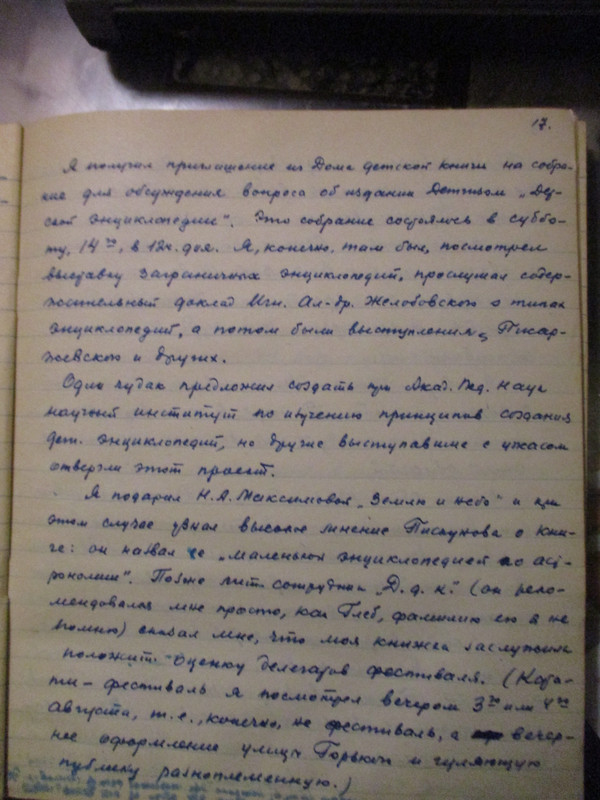 17.
Я получил приглашение из Дома детской книги на собра-
ние для обсуждения вопроса об издании Детгизом „Дет-
ской энциклопедии“. Это собрание состоялось в суббо-
ту, 14го, в 12ч. дня. Я, конечно, там был, посмотрел
выставку заграничных энциклопедий, прослушал содер-
жательный доклад Игн. Ал-др. Желобовского о типах
энциклопедий, а потом были выступления, Писар-
жевского и других.
Один чудак предложил создать при Акад. Пед. Наук
научный институт по изучению принципов создания
дет. энциклопедий, но другие выступавшие с ужасом
отвергли этот проект.
Я подарил Н.А. Максимовой „Землю и небо“ и при
этом случае узнал высокое мнение Пискунова о кни-
ге: он назвал ее „маленькой энциклопедией по аст-
рономии“. Позже лит. сотрудник „Д.д.к.“ (он реко-
мендовался мне просто, как Глеб, фамилию его я не
помню) сказал мне, что моя книжка заслужила
положит. оценку делегатов фестиваля. (Кста-
ти - фестиваль я посмотрел вечером 3го или 4го
августа, т.е., конечно, не фестиваль, а вечер-
нее оформление улицы Горького и гуляющую
публику разноплеменную.)